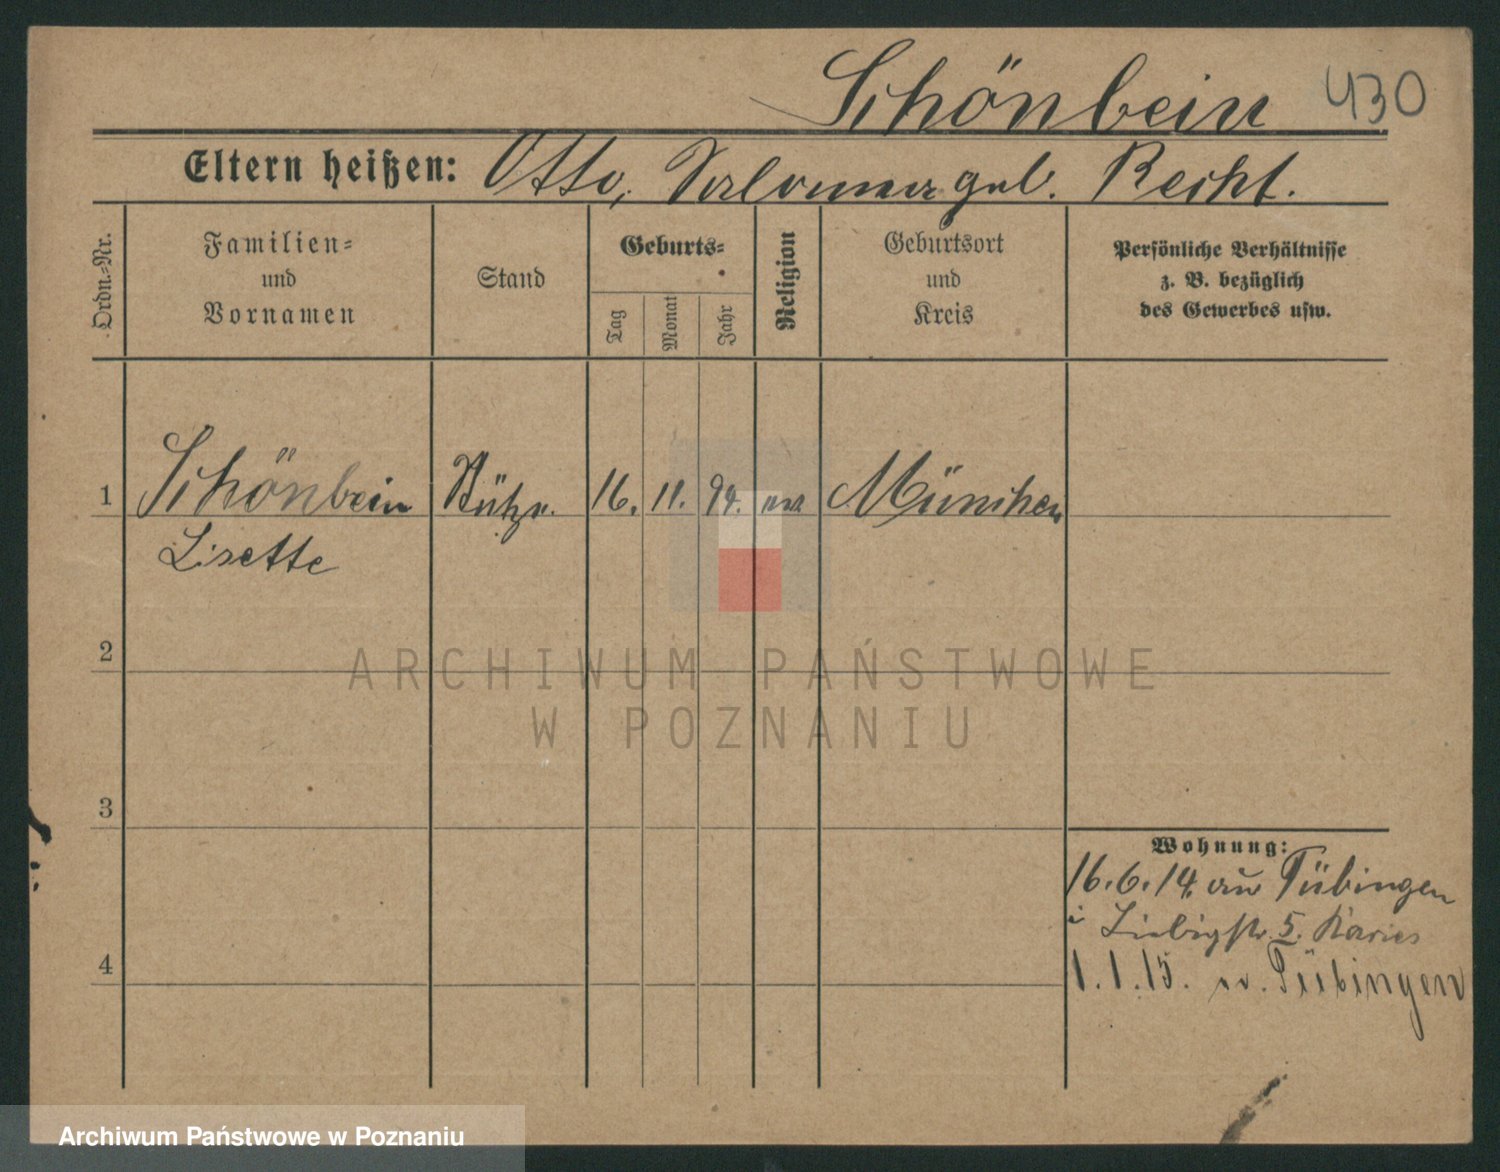 Schönbein 430
Eltern heißen: Otto, Salomea geb. Recht.
Ordn.-Nr.
Familien-
und
Vornamen
Stand
Geburts-
Tag
Monat
Jahr
Religion
Geburtsort
und
Kreis
Persönliche Verhältnisse
z. B. bezüglich
des Gewerbes usw.
1 Schönbein 16. 11. 94. München
Lisette
2
ARCHIWUM PAŃSTWOWE
W POZNANIU
3
Wohnung:
16.6.14. Tübingen
i Liebigstr. 5.
4
1.1.15. Tübingen
Archiwum Państwowe w Poznaniu